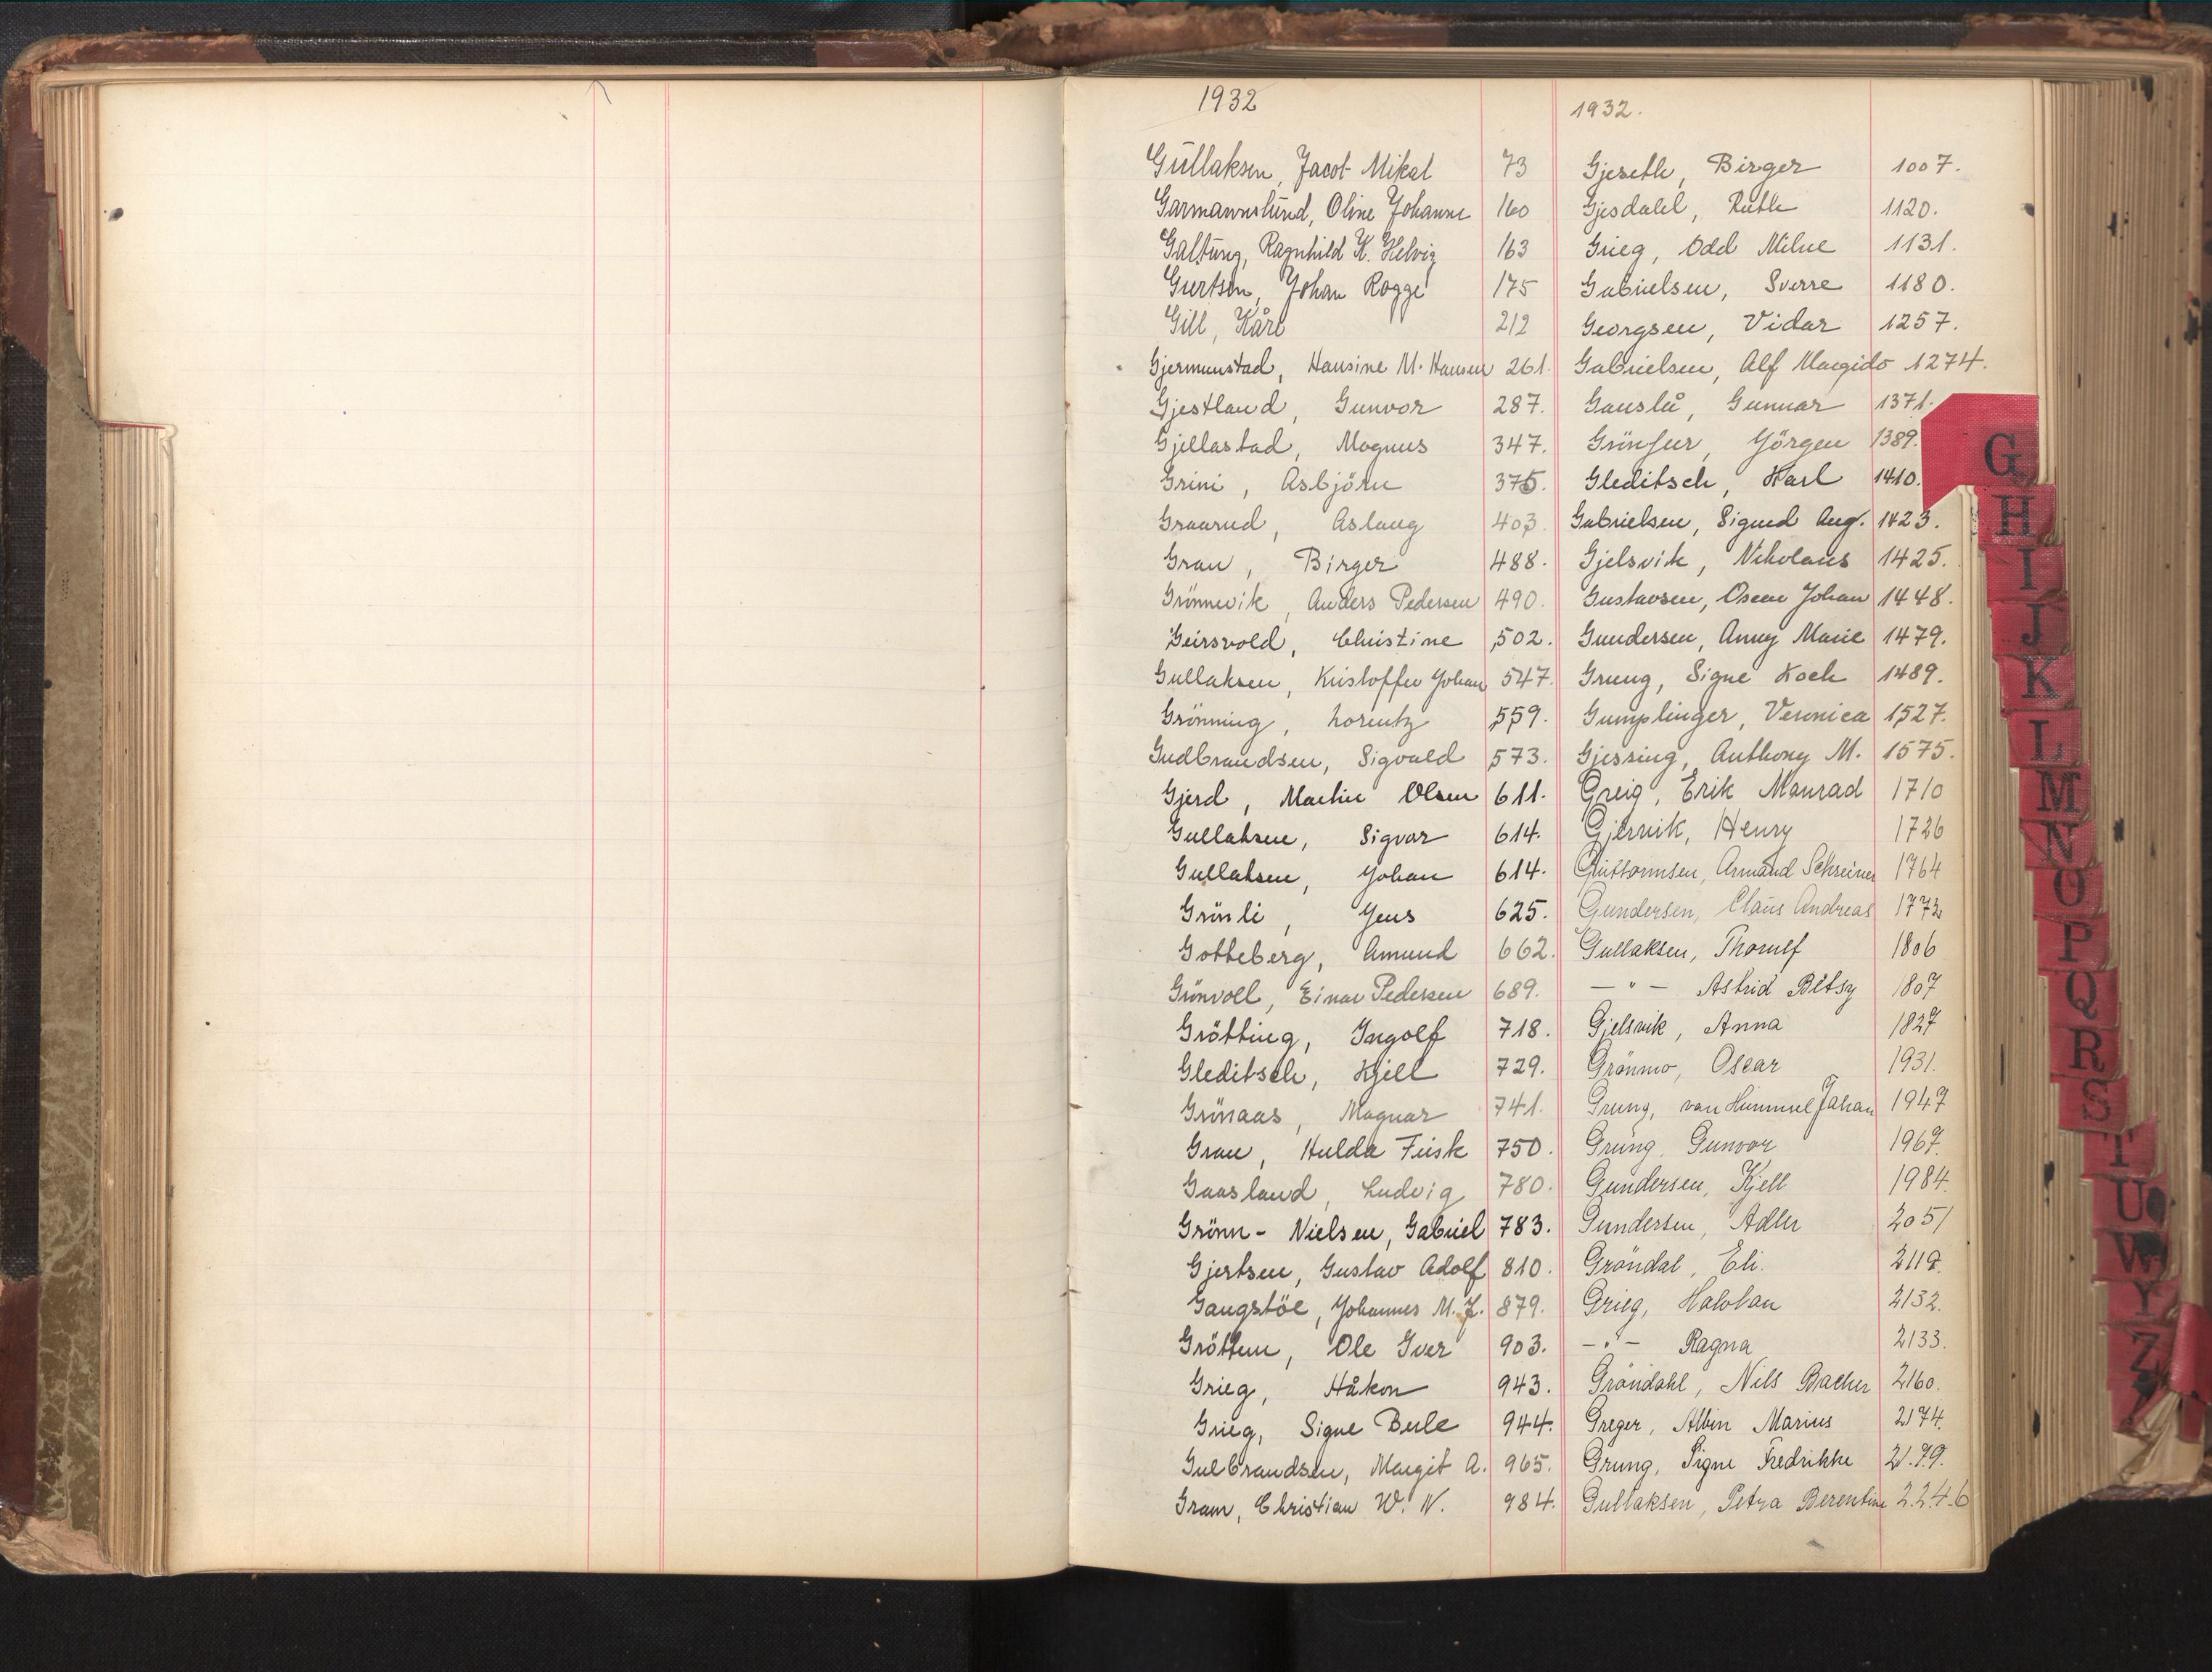 1932
Gullaksen, Jacob Mikal 73
Garmannslund, Oline Johanne 160
Galtung, Ragnhild K. Helvig 163
Giertsen, Johan Rogge 175
Gill, Kåre 212
Gjermunstad, Hansine M. Hansen 261.
Gjestland, Gunvor 287.
Gjellastad, Magnus 347.
Grini, Asbjörn 375.
Graarud, Aslaug 403.
Gran, Birger 488.
Grönnevik, Anders Pedersen 490.
Geirsvold, Christine 502.
Gullaksen, Kristoffer Johan 547.
Grönning, Lorentz 559.
Gudbrandsen, Sigvald 573.
Gjerd, Martin Olsen 611.
Gullaksen, Sigvar 614.
Gullaksen, Johan 614.
Grönli, Jens 625.
Gotteberg, Amund 662.
Grönvoll, Einar Pedersen 689.
Grötting, Ingolf 718.
Gleditsch, Kjell 729.
Grönaas, Magnar 741.
Gran, Hulda Friisk 750.
Gaasland, Ludvig 780.
Grönn-Nielsen, Gabriel 783.
Gjertsen, Gustav Adolf 810.
Gangstöe, Johannes M. J. 879.
Gröttum, Ole Iver 903.
Grieg, Håkon 943.
Grieg, Signe Berle 944.
Gulbrandsen, Margit A. 965.
Gram, Christian W. N. 984.
1932.
Gjeseth, Birger 1007.
Gjesdahl, Ruth 1120.
Grieg, Odd Milne 1131.
Gabrielsen, Sverre 1180.
Georgsen, Vidar 1257.
Gabrielsen, Alf Margido 1274.
Gauslå, Gunnar 1371.
Grünfeer, Jörgen 1389.
Gleditsch, Karl 1410.
Gabrielsen, Sigurd Aug. 1423.
Gjelsvik, Nikolaus 1425.
Gustavsen, Oscar Johan 1448.
Gundersen, Anny Marie 1479.
Grung, Signe Koch 1489.
Gumplinger, Veronica 1527.
Gjessing, Anthony M. 1575.
Greig, Erik Monrad 1710
Gjervik, Henry 1726
Guttormsen, Armand Schreiner 1764
Gundersen, Claus Andreas 1772
Gullaksen, Thorulf 1806
—"— Astrid Betsy 1807
Gjelsvik, Anna 1827
Grönmo, Oscar 1931.
Grung, van Himmsel Johan 1947
Grung, Gunvor 1967.
Gundersen, Kjell 1984.
Gundersen, Adler 2051
Gröndal, Eli. 2119.
Grieg, Halvdan 2132.
—"— Ragna 2133.
Gröndahl, Nils Bacher 2160.
Greger, Albin Marius 2174.
Grung, Signe Fredrikke 2179.
Gullaksen, Petra Berentine 2246
G
H
I
J
K
L
M
N
O
P
Q
R
S
T
U
W
Y
Z